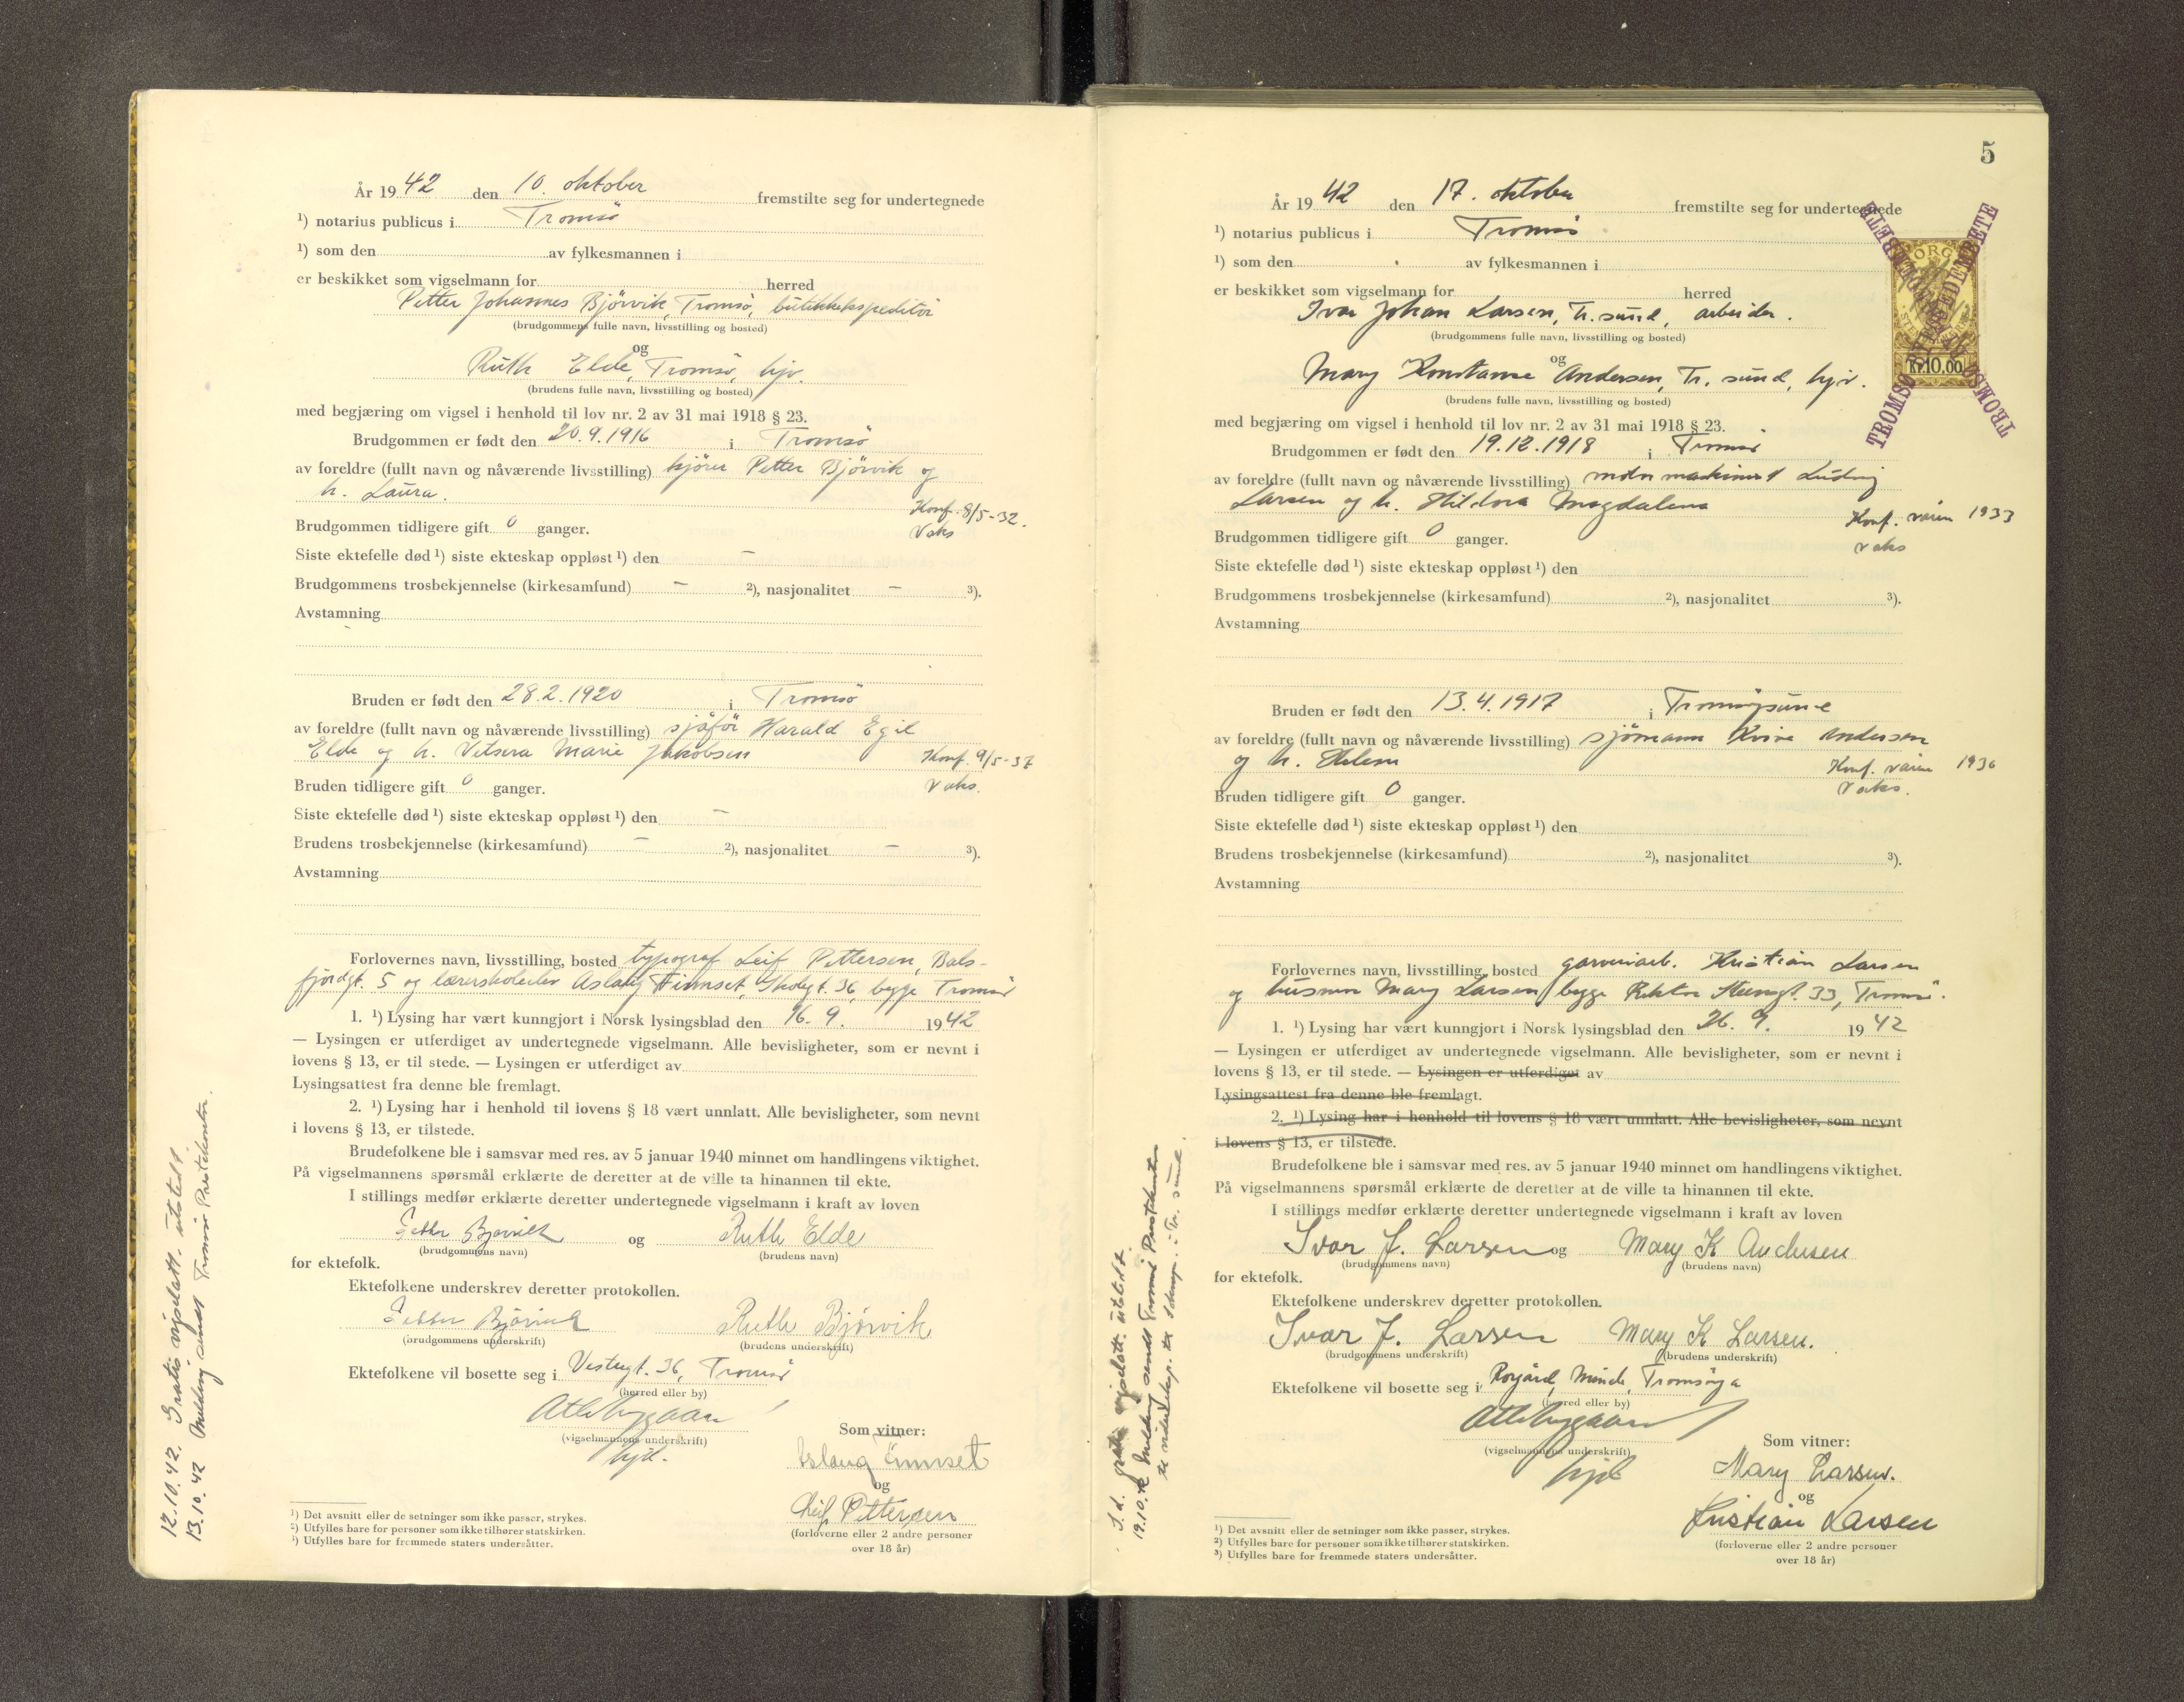 År 1942 den 10. oktober fremstilte seg for undertegnede
¹) notarius publicus i Tromsö
¹) som den av fylkesmannen i
er beskikket som vigselmann for herred
Petter Johannes Björvik, Tromsö, butikkekspeditör
(brudgommens fulle navn, livsstilling og bosted)
og
Ruth Elde, Tromsö, hjv.
(brudens fulle navn, livsstilling og bosted)
med begjæring om vigsel i henhold til lov nr. 2 av 31 mai 1918 § 23.
Brudgommen er født den 20.9.1916 i Tromsö
av foreldre (fullt navn og nåværende livsstilling) kjörer Petter Björvik og
h. Laura.
Konf. 8/5-32.
Brudgommen tidligere gift 0 ganger.
Vaks
Siste ektefelle død ¹) siste ekteskap oppløst ¹) den –
Brudgommens trosbekjennelse (kirkesamfund) – ²), nasjonalitet – ³).
Avstamning
Bruden er født den 28.2.1920 i Tromsö
av foreldre (fullt navn og nåværende livsstilling) sjåför Harald Egil
Elde og h. Vetsera Marie Jakobsen
Konf. 9/5-37
Bruden tidligere gift 0 ganger.
Vaks.
Siste ektefelle død ¹) siste ekteskap oppløst ¹) den –
Brudens trosbekjennelse (kirkesamfund) – ²), nasjonalitet – ³).
Avstamning
Forlovernes navn, livsstilling, bosted typograf Leif Pettersen, Bals-
fjordgt. 5 og lærerskoleelev Aslaug Finnset, Skolegt. 36, begge Tromsö
1. ¹) Lysing har vært kunngjort i Norsk lysingsblad den 16.9. 1942
— Lysingen er utferdiget av undertegnede vigselmann. Alle bevisligheter, som er nevnt i
lovens § 13, er til stede. — Lysingen er utferdiget av
Lysingsattest fra denne ble fremlagt.
2. ¹) Lysing har i henhold til lovens § 18 vært unnlatt. Alle bevisligheter, som nevnt
i lovens § 13, er tilstede.
Brudefolkene ble i samsvar med res. av 5 januar 1940 minnet om handlingens viktighet.
På vigselmannens spørsmål erklærte de deretter at de ville ta hinannen til ekte.
I stillings medfør erklærte deretter undertegnede vigselmann i kraft av loven
Petter Bjørvik og Ruth Elde
(brudgommens navn) (brudens navn)
for ektefolk.
Ektefolkene underskrev deretter protokollen.
Petter Björvik Ruth Björvik
(brudgommens underskrift) (brudens underskrift)
Ektefolkene vil bosette seg i Vestregt. 36, Tromsö
(herred eller by)
(vigselmannens underskrift)
hjd.
Som vitner:
Aslaug Finnset
og
Leif Pettersen
(forloverne eller 2 andre personer
over 18 år)
¹) Det avsnitt eller de setninger som ikke passer, strykes.
²) Utfylles bare for personer som ikke tilhører statskirken.
³) Utfylles bare for fremmede staters undersåtter.
12.10.42. Gratis vigselatt. utstedt.
13.10.42 Melding sendt Tromsö Prestekontor.
5
År 1942 den 17. oktober fremstilte seg for undertegnede
¹) notarius publicus i Tromsö
¹) som den av fylkesmannen i
er beskikket som vigselmann for herred
Ivar Johan Larsen, Tr.sund, arbeider.
(brudgommens fulle navn, livsstilling og bosted)
og
Mary Konstanse Andersen, Tr.sund, hjv.
(brudens fulle navn, livsstilling og bosted)
NORGE
Kr. 10,00
TROMSØ BYFOGDEMBETE
TROMSØ BYFOGDEMBETE
med begjæring om vigsel i henhold til lov nr. 2 av 31 mai 1918 § 23.
Brudgommen er født den 19.12.1918 i Tromsö
av foreldre (fullt navn og nåværende livsstilling) maskinist Ludvig
Larsen og h. Hildora Magdalena
Konf. våren 1933
Brudgommen tidligere gift 0 ganger.
vaks
Siste ektefelle død ¹) siste ekteskap oppløst ¹) den
Brudgommens trosbekjennelse (kirkesamfund) ²), nasjonalitet ³).
Avstamning
Bruden er født den 13.4.1917 i Tromsöysund
av foreldre (fullt navn og nåværende livsstilling) sjömann Andersen
og h. Helene
Konf. våren 1930
Bruden tidligere gift 0 ganger.
Vaks.
Siste ektefelle død ¹) siste ekteskap oppløst ¹) den
Brudens trosbekjennelse (kirkesamfund) ²), nasjonalitet ³).
Avstamning
Forlovernes navn, livsstilling, bosted garveriarb. Kristian Larsen
og husmor Mary Larsen, begge Rektor Steengt. 33, Tromsö.
1. ¹) Lysing har vært kunngjort i Norsk lysingsblad den 26.9. 1942
— Lysingen er utferdiget av undertegnede vigselmann. Alle bevisligheter, som er nevnt i
lovens § 13, er til stede. — Lysingen er utferdiget av
Lysingsattest fra denne ble fremlagt.
2. ¹) Lysing har i henhold til lovens § 18 vært unnlatt. Alle bevisligheter, som nevnt
i lovens § 13, er tilstede.
Brudefolkene ble i samsvar med res. av 5 januar 1940 minnet om handlingens viktighet.
På vigselmannens spørsmål erklærte de deretter at de ville ta hinannen til ekte.
I stillings medfør erklærte deretter undertegnede vigselmann i kraft av loven
Ivar J. Larsen og Mary K Andersen
(brudgommens navn) (brudens navn)
for ektefolk.
Ektefolkene underskrev deretter protokollen.
Ivar J. Larsen Mary K Larsen.
(brudgommens underskrift) (brudens underskrift)
Ektefolkene vil bosette seg i Tromsöya
(herred eller by)
(vigselmannens underskrift)
hjd
Som vitner:
Mary Larsen.
og
Kristian Larsen
(forloverne eller 2 andre personer
over 18 år)
¹) Det avsnitt eller de setninger som ikke passer, strykes.
²) Utfylles bare for personer som ikke tilhører statskirken.
³) Utfylles bare for fremmede staters undersåtter.
S.d. gratis vigselatt. utstedt.
19.10.42 Melding sendt Tromsö Prestekontor
Tr.sund.